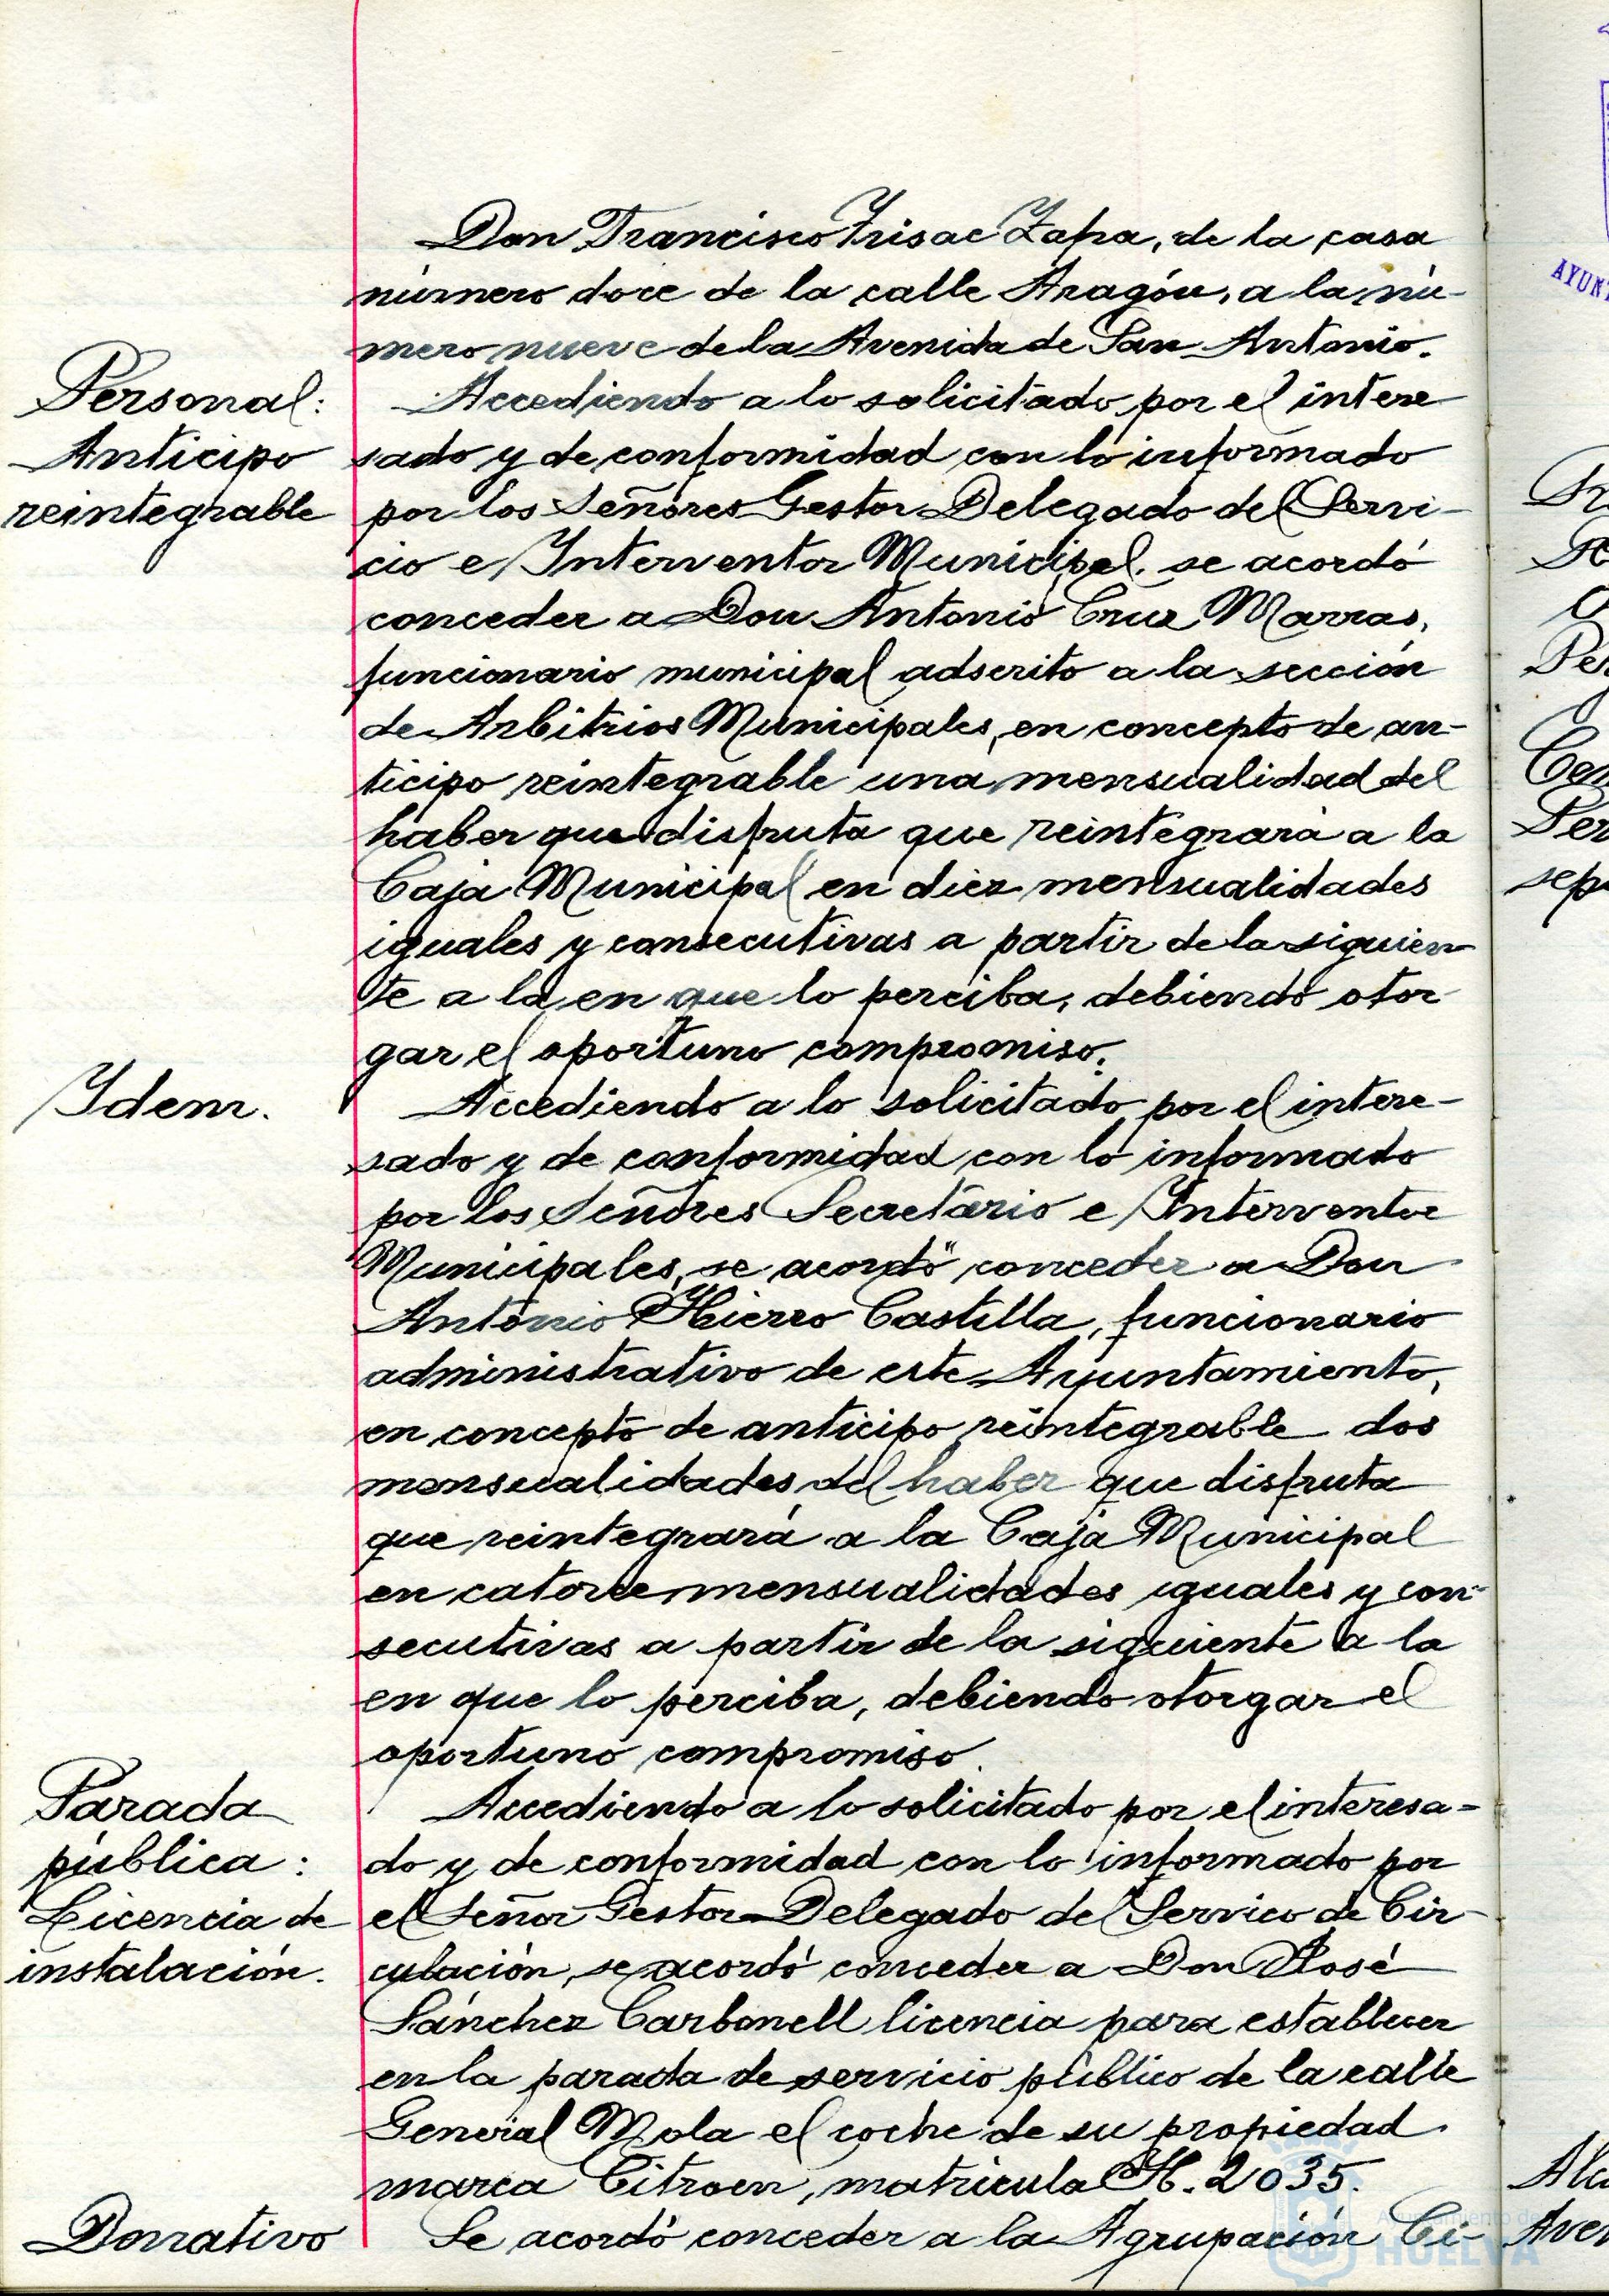 Don Francisco Frisac Zapa, de la casa
número doce de la calle Aragón, a la nú-
mero nueve de la Avenida de San Antonio.
Personal:
Anticipo
reintegrable
Accediendo a lo solicitado por el intere
sado y de conformidad con lo informado
por los Señores Gestor Delegado del Servi-
cio e Interventor Municipal, se acordó
conceder a Don Antonio Cruz Marras,
funcionario municipal adscrito a la sección
de Arbitrios Municipales, en concepto de an-
ticipo reintegrable una mensualidad del
haber que disfruta que reintegrará a la
Caja Municipal en diez mensualidades
iguales y consecutivas a partir de la siguien
te a la en que lo perciba, debiendo otor
gar el oportuno compromiso.
Idem.
Accediendo a lo solicitado por el intere-
sado y de conformidad con lo informado
por los Señores Secretario e Interventor
Municipales, se acordó conceder a Don
Antonio Hierro Castilla, funcionario
administrativo de este Ayuntamiento,
en concepto de anticipo reintegrable dos
mensualidades del haber que disfruta
que reintegrará a la Caja Municipal
en catorce mensualidades iguales y con-
secutivas a partir de la siguiente a la
en que lo perciba, debiendo otorgar el
oportuno compromiso.
Parada
pública:
Licencia de
instalación.
Accediendo a lo solicitado por el interesa-
do y de conformidad con lo informado por
el Señor Gestor Delegado del Servico de Cir-
culación, se acordó conceder a Don José
Sánchez Carbonell licencia para establecer
en la parada de servicio público de la calle
General Mola el coche de su propiedad
marca Citroen, matricula H. 2035.
Donativo
Se acordó conceder a la Agrupación Ci-
Ayuntamiento de
HUELVA
AYUN